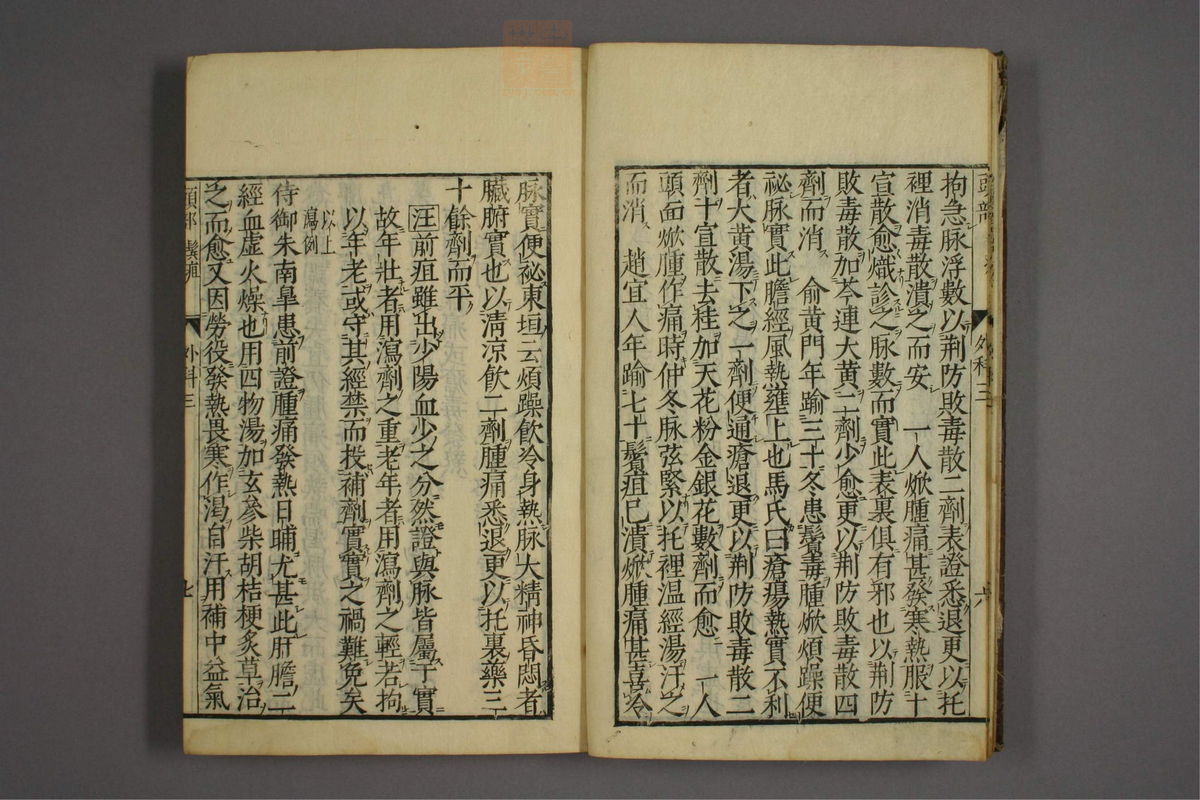 拘急脉浮數以荆防敗毒散二劑表證悉退更以托
裡消毒散潰之而安　一人焮腫痛甚發寒熱服十
宣散愈熾診之脉數而實此表裏俱有邪也以荆防
敗毒散加芩連大黄二劑少愈更以荆防敗毒散四
劑而消　俞黄門年踰三十冬患鬢毒腫焮煩躁便
祕脉實此膽經風熱壅上也馬氏曰瘡瘍熱實不利
者大黄湯下之一劑便通瘡退更以荆防敗毒散二
劑十宣散去桂加天花粉金銀花數劑而愈　一人
頭面焮腫作痛時仲冬脉弦緊以托裡温經湯汗之
而消　趙宜人年踰七十鬢疽已潰焮腫痛甚喜冷
脉實便祕東垣云煩躁飲冷身熱脉大精神昏悶者
臟腑實也以清凉飲二劑腫痛悉退更以托裏藥三
十餘劑而平
汪前疽雖出少陽血少之分然證與脉皆屬于實
故年壯者用瀉劑之重老年者用瀉劑之輕若拘
以年老或守其經禁而投補劑實實之禍難免矣
以上
瀉例
侍御朱南皐患前證腫痛發熱日晡尤甚此肝膽二
經血虛火燥也用四物湯加玄參柴胡桔梗炙草治
之而愈又因勞役發熱畏寒作渴自汗用補中益氣
外科三
六
外科三
七